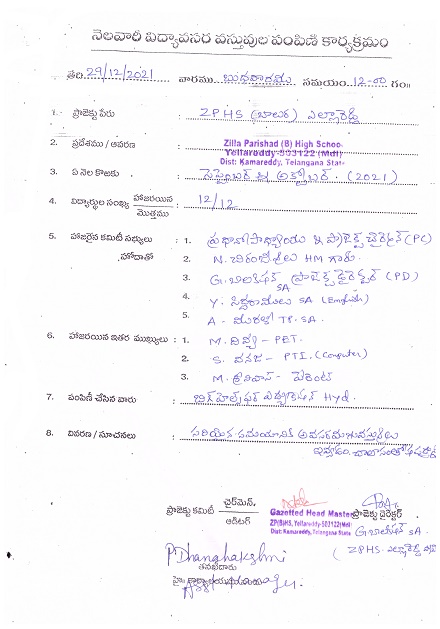 నెలవారీ విద్యావసర వస్తువుల పంపిణి కార్యక్రమం
తేది. 29/12/2021 వారము బుధవారము సమయం. 12-00 గం॥
1. ప్రాజెక్టు పేరు : ZPHS (బాలుర) ఎల్లారెడ్డి
2. ప్రదేశము / ఆవరణ : Zilla Parishad (B) High School
Yellareddy-503122 (Mdl)
Dist: Kamareddy, Telangana State
3. ఏ నెల కొఱకు : సెప్టెంబర్ & అక్టోబర్. (2021)
4. విద్యార్థుల సంఖ్య హాజరయిన / మొత్తము : 12/12
5. హాజరైన కమిటీ సభ్యులు : 1. ప్రధానోపాధ్యాయ & ప్రాజెక్టు చైర్మన్ (PC)
హోదాతో 2. N. చిరంజీవులు HM గారు.
3. G. బాలకిషన్ SA ప్రాజెక్టు డైరెక్టర్ (PD)
4. Y. సిద్దరాములు SA (English)
5. A - మురళి TP. SA.
6. హాజరయిన ఇతర ముఖ్యులు : 1. M. దివ్య - PET.
2. S. వనజ - PTI. (Computer)
3. M. శ్రీనివాస్ - పేరెంట్
7. పంపిణీ చేసిన వారు : Hyd.
8. వివరణ / సూచనలు : సరియైన సమయానికి అవసరమగు వస్తువులు
ఇవ్వడం, చాలా
ప్రాజెక్టు కమిటీ చైర్‌మెన్,
ఆడిటర్
Gazetted Head Master
ZP(B)HS, Yellareddy-503122(Mdl)
Dist: Kamareddy, Telangana State
ప్రాజెక్టు డైరెక్టర్
G. బాలకిషన్ SA
(ZPHS. ఎల్లారెడ్డి
P Dhanalakshmi